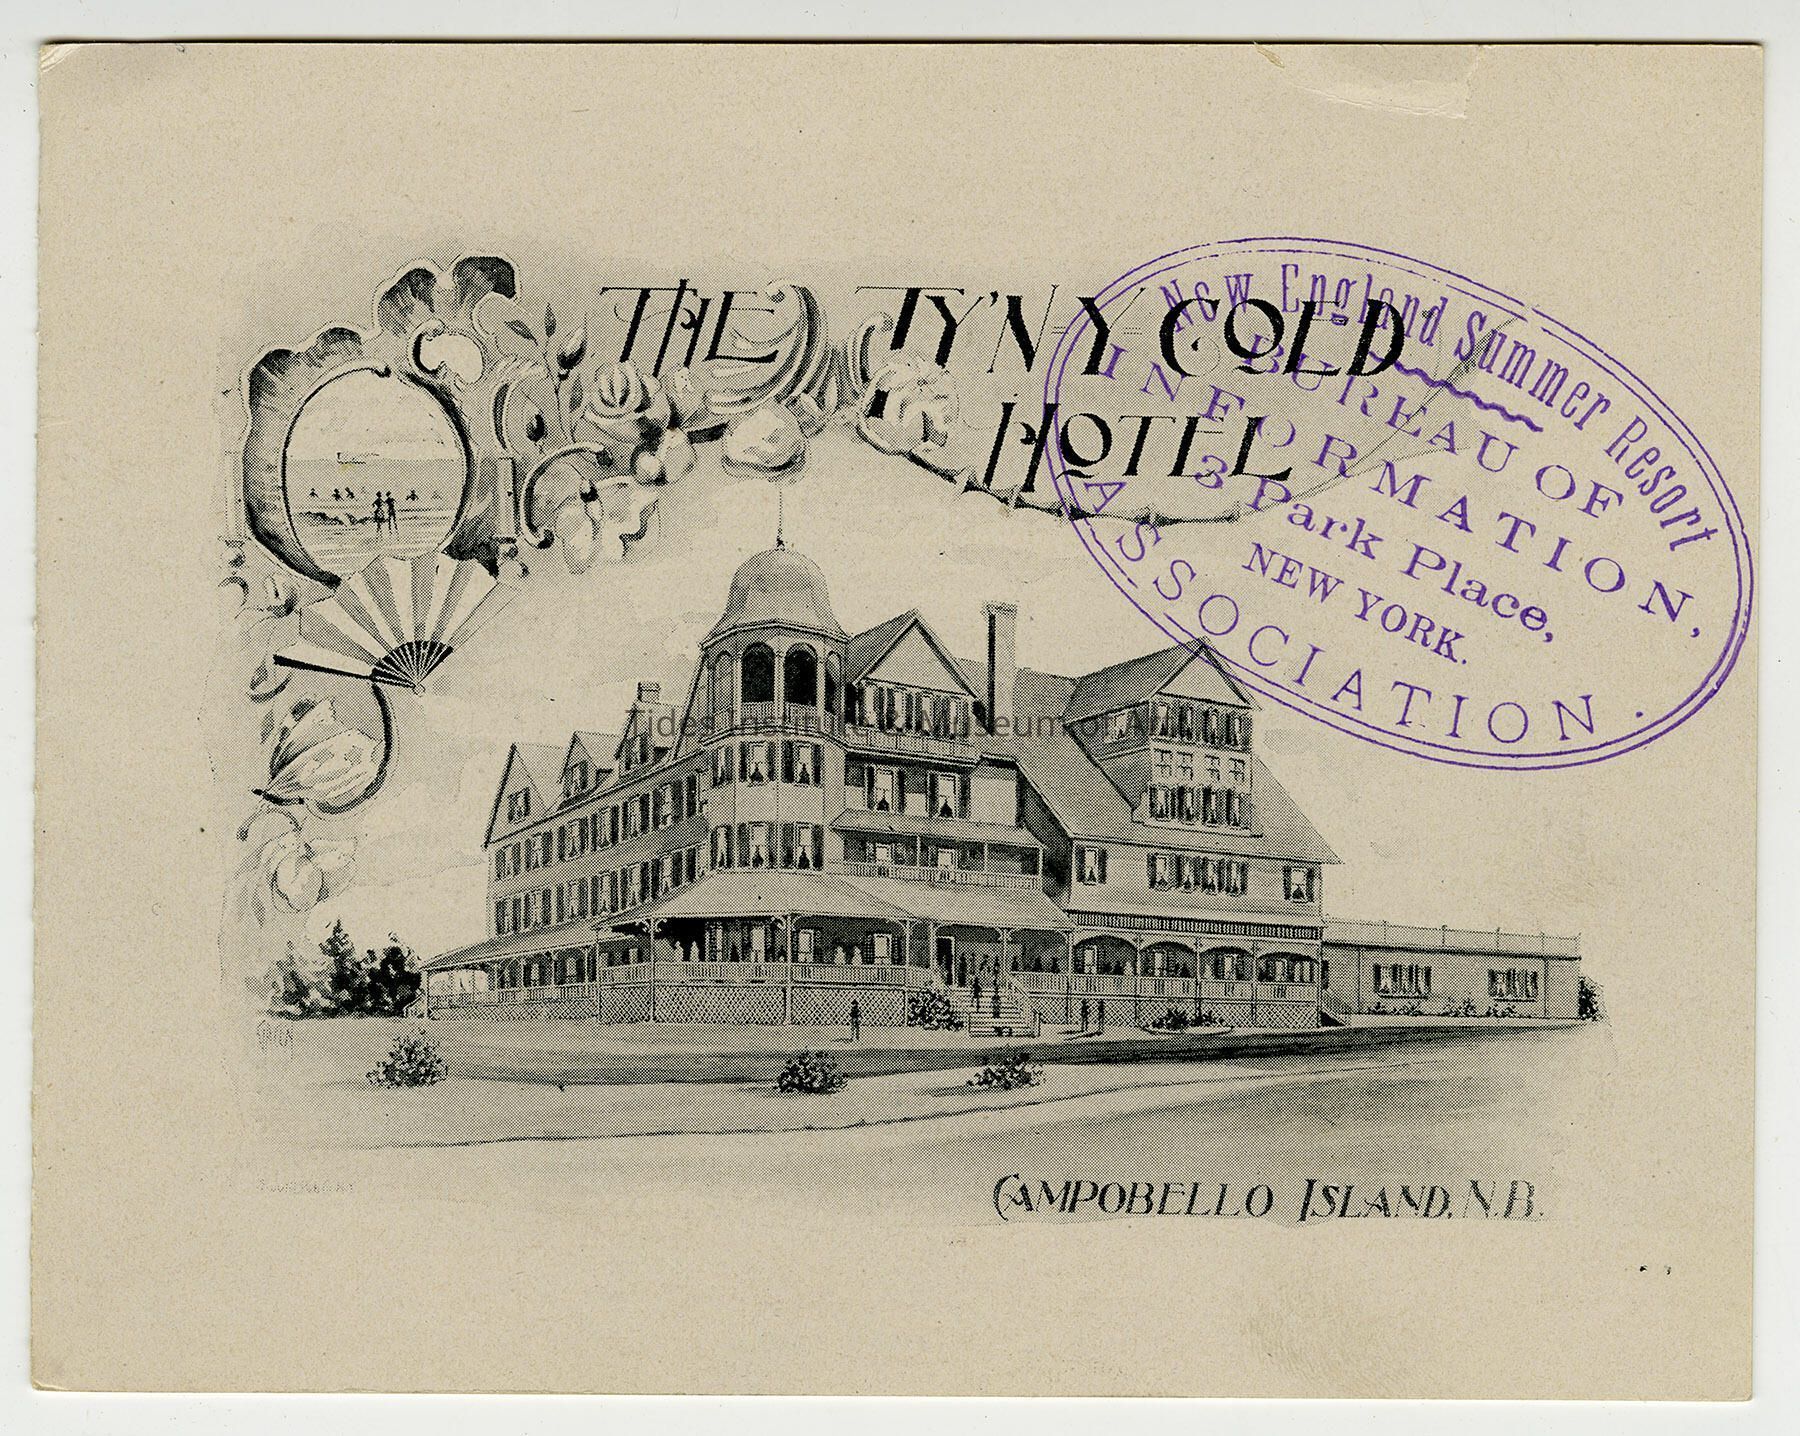 THE TY'N-Y COED
HOTEL
New England Summer Resort
BUREAU OF
INFORMATION,
3 Park Place,
NEW YORK.
ASSOCIATION.
Tides Institute & Museum of Art
CAMPOBELLO ISLAND, N.B.